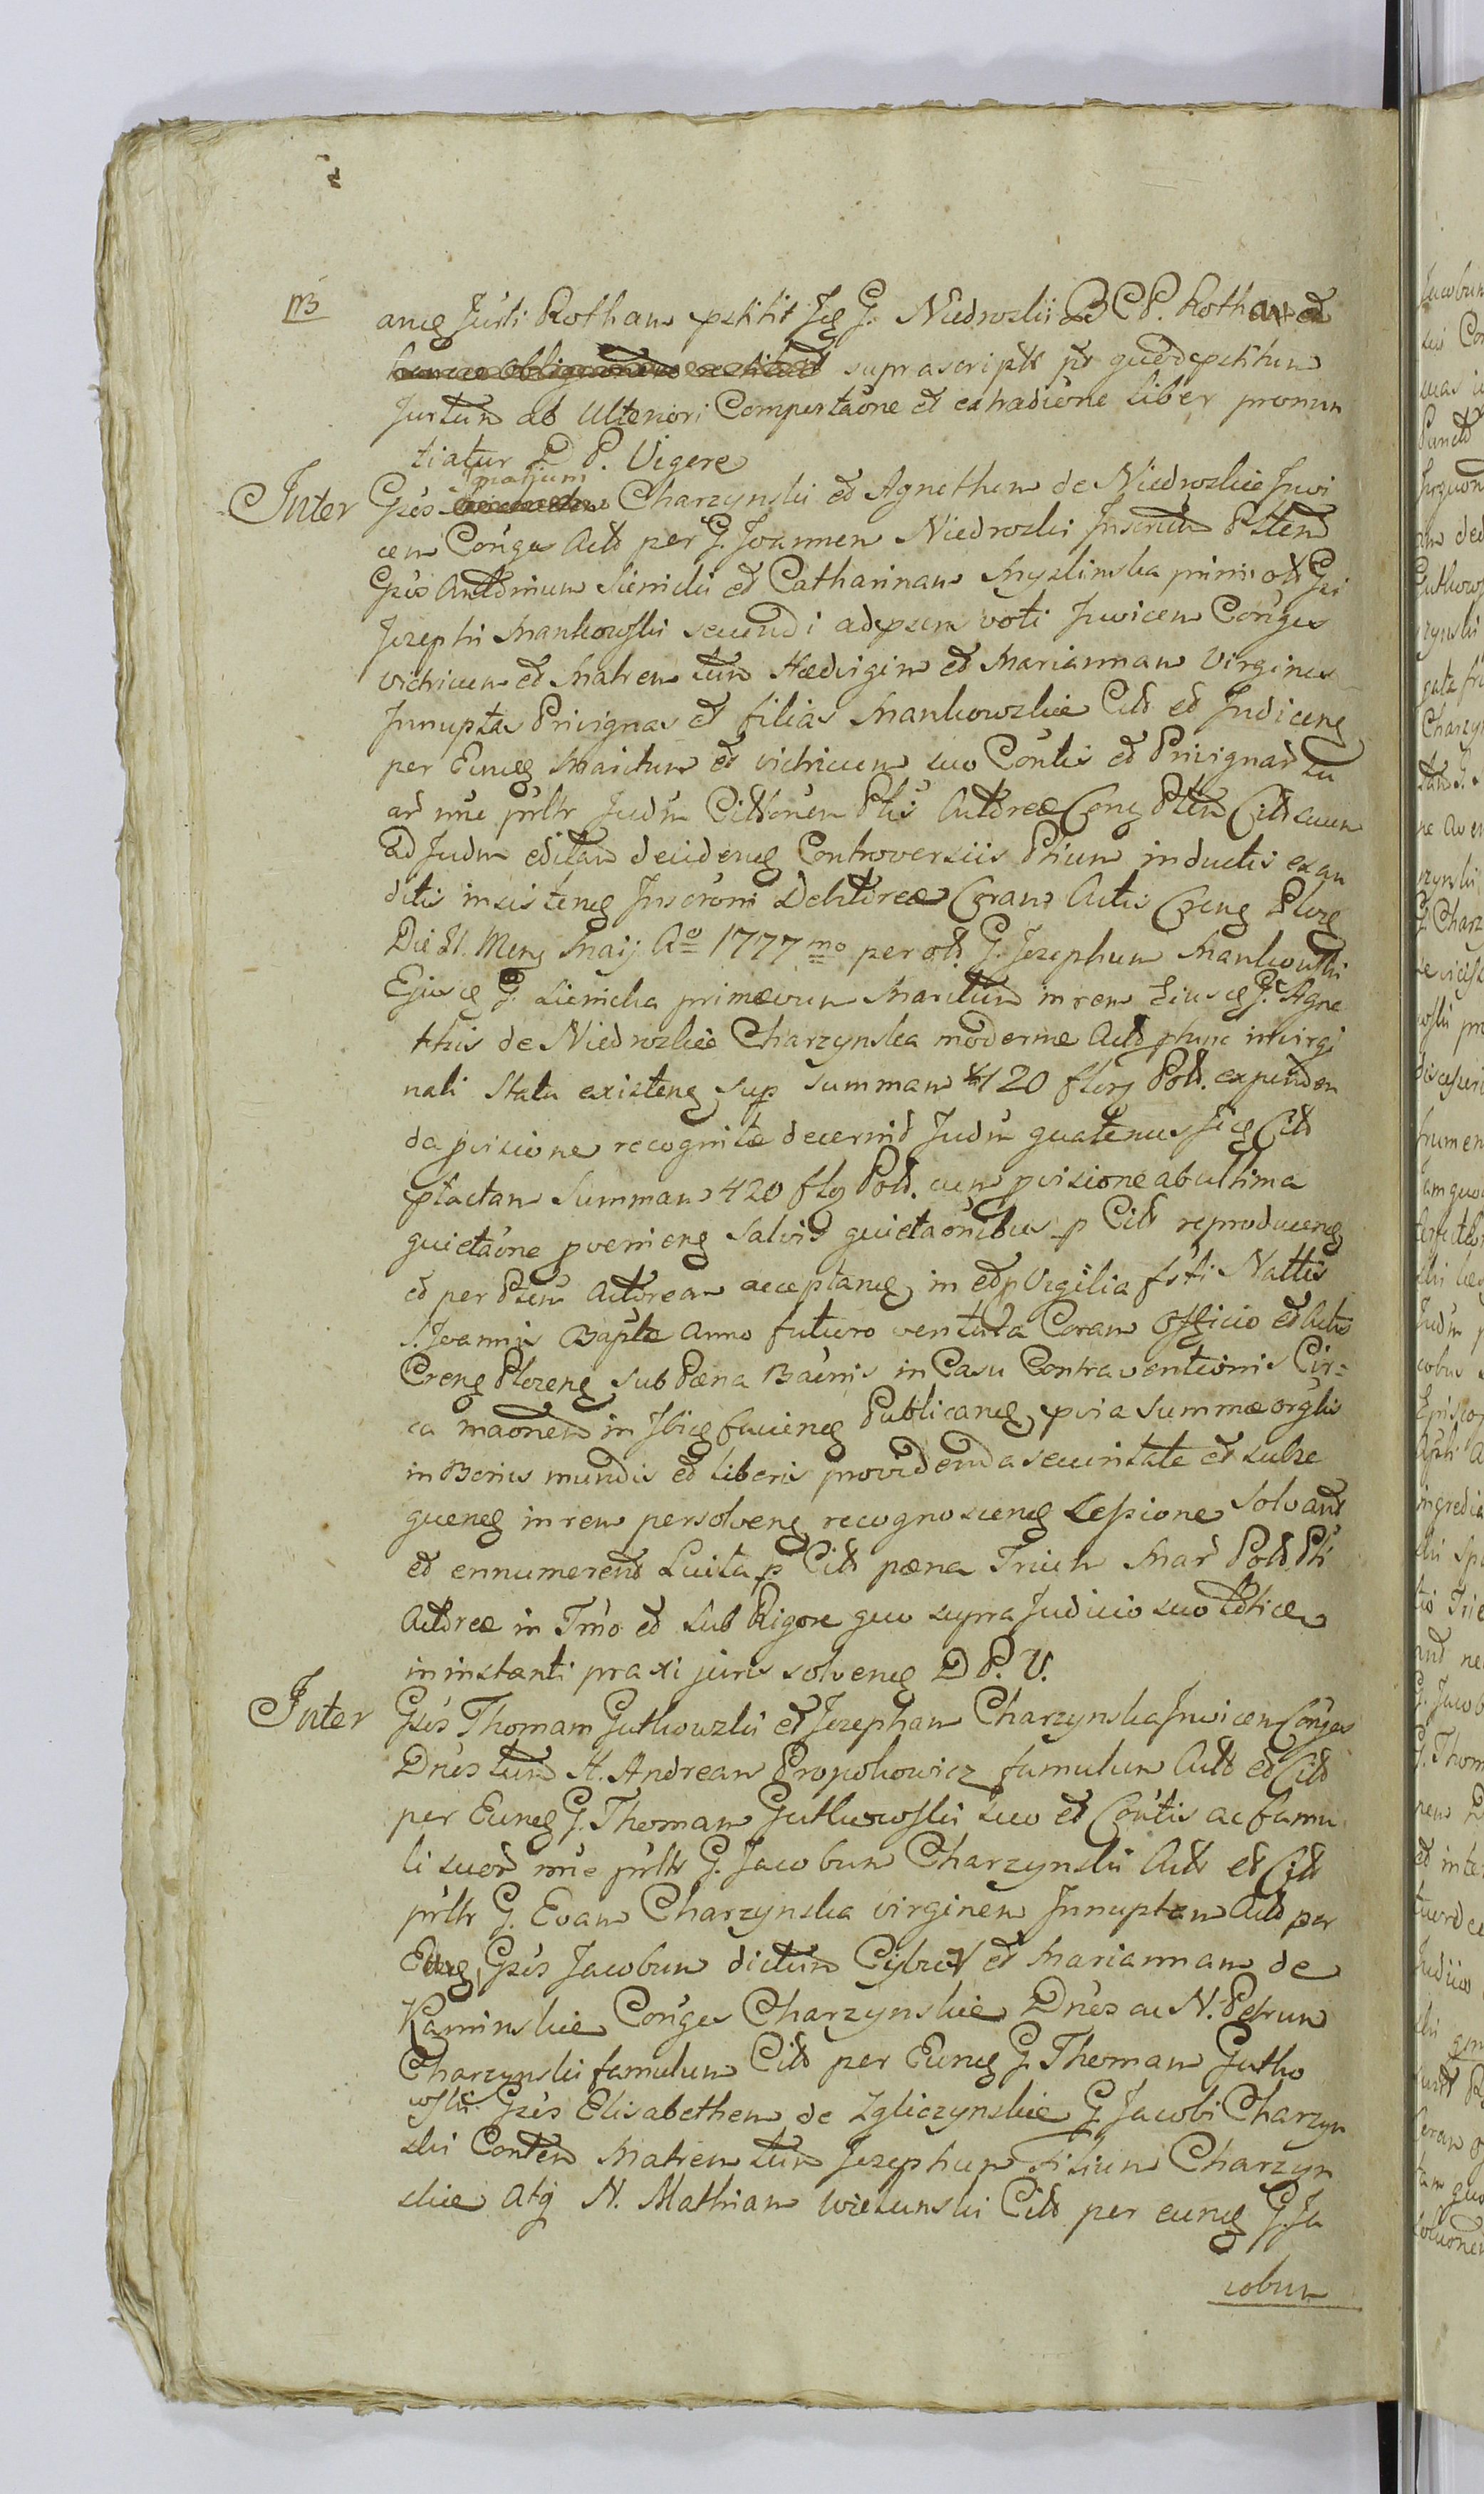 173
aneg Jurti Rotham pstitit Jeg G. Niedrozki D C P. Rotham et
suprascriptt pr quedpstitum
Jurtum ab Ulteriori Comportaone et extradione liber pronun
tiatur D P. Vigere
Inter Gses Charzynski et Agnethem de Niedrozkie Invi
cem Conges Actt per G. Joannem Niedrozki Inscrm Psten
Gses Antonium Sienicki et Catharinam Myslinska primi ott Gsi
Jozephi Mankowski secundi adpsens voti Invicem Conges
vitricum et Matrem tum Hedvigim et Mariannam Virgines
Innuptas Privignas et filias Mankowskie Citt et Judiceng
per Euneg Maritum et vitricum suo Contis et Privignar su
ar nne prltr Judm Cittonem Ptis Acttoreæ Cong Pten Citt suum
Ad Judm editam decideng Controversiis Ptium inductis exau
ditis insisteng Inscroni Debitoreæ Coram Actis Creng Plozg
Die 21. Mens Maij Ao 1777mo per ott. G. Jozephum Mankowski
Ejusg G. Sienicka primævum Maritum in rem Ejusg G. Agne
this de Niedrozkie Charzynska moderne Actt ptunc in virgi
nali Statu existeng sup summam 420 florg Poll. expenden
da pvisione recognitæ decernit Judm quatenus Jig Citt
ptactam Summam 420 flog Poll. cum pvisione ab ultima
quietaone pvenieng salvis quietaonibus p Citt reproduceng
et per Ptem Actoream acceptaneg in et p Vigilia festi Nattis
S. Joannis Baptæ anno futuro ventura Coram Officio et Actis
Creng Plozeng sub Pæna Bannis in Casu Contraventionis Cir=
ca maonem in Ibig facieng Publicaneg, pvia summæ orglis
in Bonis mundis et liberis providenda securitate et subse
queneg in rem persolveng recognosceng Cessione Solvant
et ennumerent Luita p Citt pæna Trium Mar Poll. Pti
Acttoreæ in Tmo et sub Rigore quo supra Judicio suo
in instanti praxi juris solveneg D P. V.
Inter Gses Thomam Gutkowski et Jozepham Charzynska Invicem Conges
Dnes tum H. Andream Propokowicz famulum Actt et Citt
per Euneg G. Thomam Gutkowski suo et Contis ac famu
li suor nne prltr G. Jacobum Charzynski Actt et Citt
prltr G. Evam Charzynska virginem Innuptam Actt per
Euneg Gses Jacobum dictum et Mariannam de
Kaminskie Conges Charzynskie Dnes ac N. Petrum
Charzynski famulum Citt per Euneg G. Thomam Gutko
wski. Gses Elisabethem de Zgliczynskie G. Jacobi Charzyn
ski Conten Matrem tum Jozephum filium Charzyn
skie atq N. Mathiam Citt per euneg G. Ja
cobum